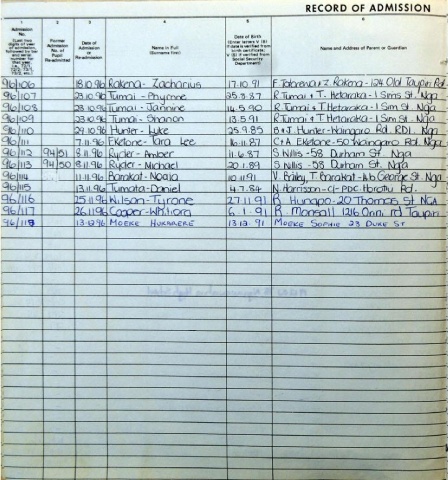 RECORD OF ADMISSION
1 2 3 4 5 6
Admission No. Former Admission No. of Pupil Re-admitted Date of Admission or Re-admission Name in Full (Surname first) Date of Birth (Enter letters V (B) if date is verified from birth certificate, V (S) if verified from Social Security Department) Name and Address of Parent or Guardian
96/106 18.10.96 Rakena - Zacharius 17.10.91 Z. Rakena - 124 Old Taupiri Rd.
96/107 23.10.96 Tumai - 25.3.87 R. Tumai + T. Hetaraka - 1 Sims St. Nga
96/108 23.10.96 Tumai - Jannine 14.5.90 R. Tumai + T Hetaraka - 1 Sim St. Nga
96/109 23.10.96 Tumai - Shanon 13.5.91 R. Tumai + T Hetaraka - 1 Sims St. Nga
96/110 29.10.96 Hunter - Luke 25.9.85 B + J. Hunter - Waingaro Rd. RD1. Nga
96/111 7.11.96 Eketone - Tara Lee 16.11.87 C + A Eketone - 50 Waingaro Rd. Nga
96/112 94/51 8.11.96 Ryder - Amber 11.6.87 S Nillis - 58 Durham St. Nga
96/113 94/50 8.11.96 Ryder - Michael 20.1.89 S Nillis - 58 Durham St. Nga
96/114 11.11.96 Barakat - 10.11.91 V. T. Barakat - George St. Nga
96/115 13.11.96 Tumata - Daniel 4.7.84 N. Harrison - C/- PDC Horotiu Rd.
96/116 25.11.96 Wilson - Tyrone 27.11.91 R. Hunapo - 20 Thomas St NGA
96/117 26.11.96 Cooper - 6.1.91 R. Monsall 1216 Orini rd Taupiri
96/118 13.12.96 MOEKE HUKARERE 13.12.91 MOEKE SOPHIE 23 DUKE ST